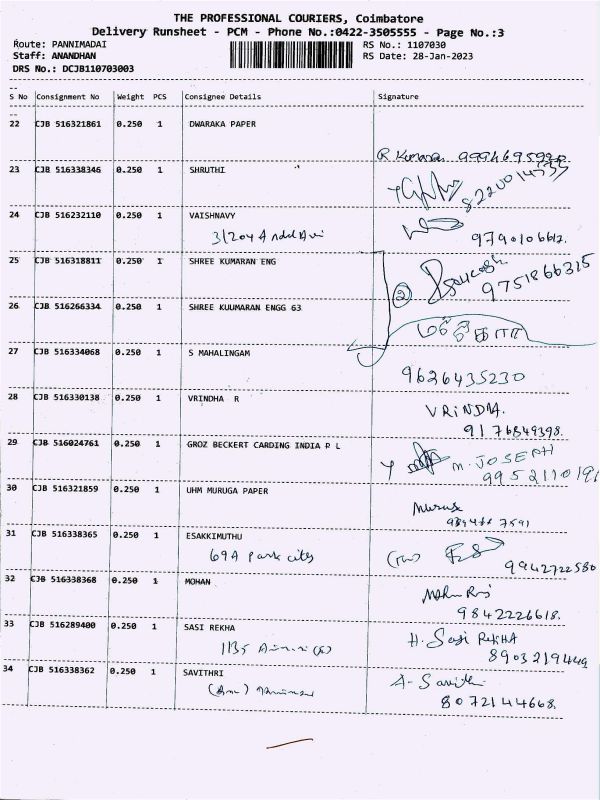 THE PROFESSIONAL COURIERS, Coimbatore
Delivery Runsheet - PCM - Phone No.:0422-3505555 - Page No.:3
Route: PANNIMADAI
RS No.: 1107030
Staff: ANANDHAN
RS Date: 28-Jan-2023
DRS No.: DCJB110703003
S No Consignment No Weight PCS Consignee Details Signature
22 CJB 516321861 0.250 1 DWARAKA PAPER
R Kumaran
23 CJB 516338346 0.250 1 SHRUTHI
24 CJB 516232110 0.250 1 VAISHNAVY
3/204
9790106612.
25 CJB 516318811 0.250 1 SHREE KUMARAN ENG
② 9751866315
26 CJB 516266334 0.250 1 SHREE KUUMARAN ENGG 63
27 CJB 516334068 0.250 1 S MAHALINGAM
9626435230
28 CJB 516330138 0.250 1 VRINDHA R
VRINDHA.
29 CJB 516024761 0.250 1 GROZ BECKERT CARDING INDIA P L
M. JOSEPH
30 CJB 516321859 0.250 1 UHM MURUGA PAPER
31 CJB 516338365 0.250 1 ESAKKIMUTHU
69A Park city
9942722580
32 CJB 516338368 0.250 1 MOHAN
9842226618.
33 CJB 516289400 0.250 1 SASI REKHA
H. Sasi Rekha
8903219449
34 CJB 516338362 0.250 1 SAVITHRI
A- Savithri
8072144668.